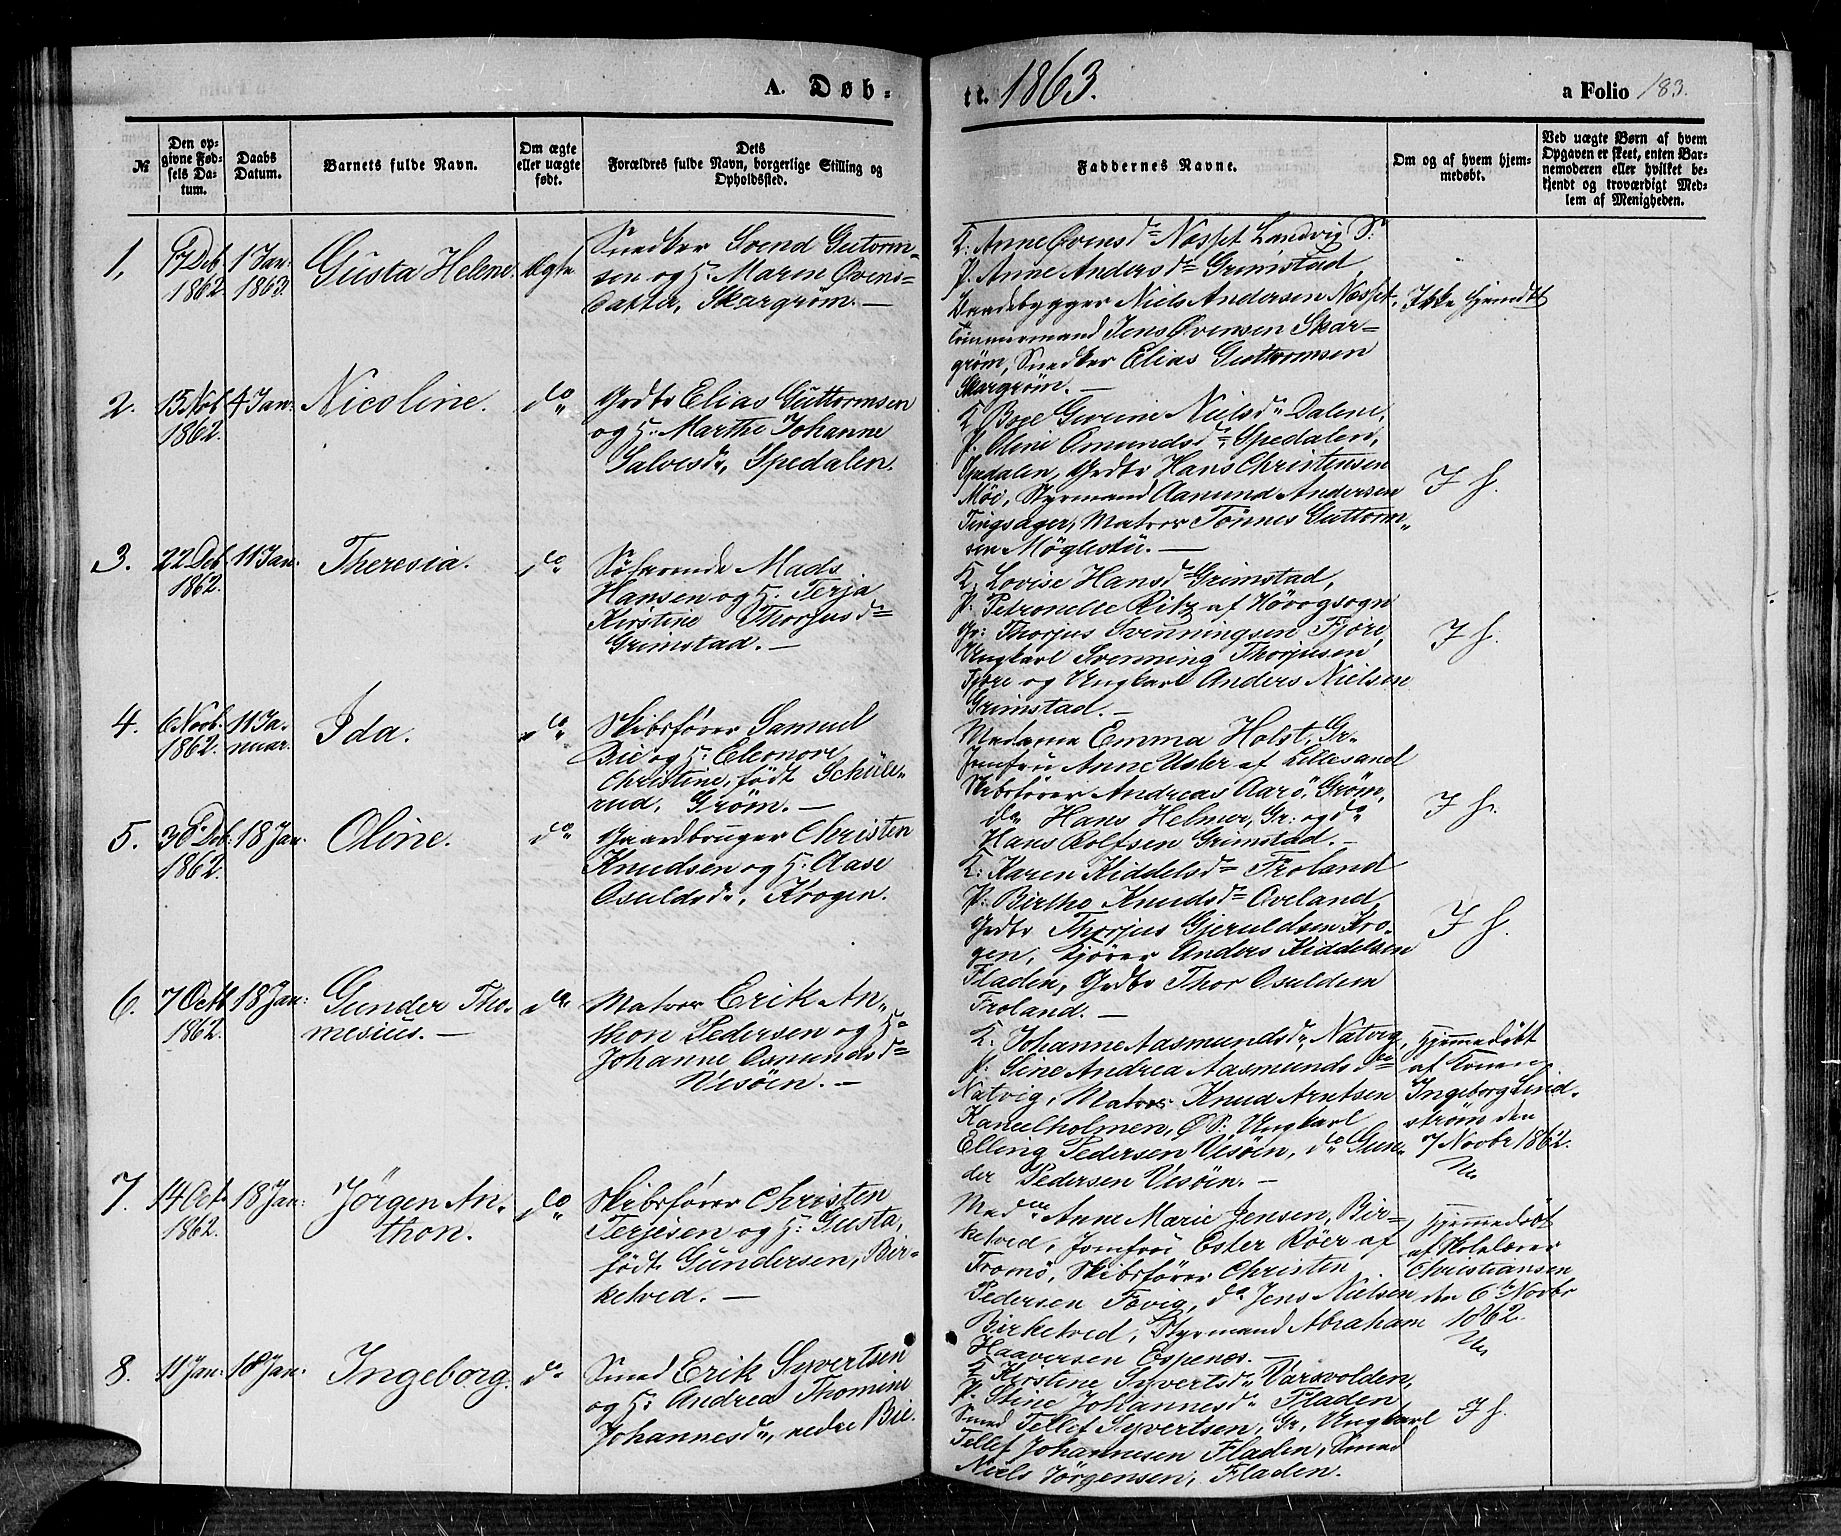 A. Døb-
tt. 1863.
a Folio 183.
№
Den op-
givne Fød-
sels Da-
tum.
Daabs
Datum.
Barnets fulde Navn.
Om ægte
eller uægte
født.
Dets
Forældres fulde Navn, borgerlige Stilling og
Opholdssted.
Faddernes Navne.
Om og af hvem hjem-
medøbt.
Ved uægte Børn af hvem
Opgaven er skeet, enten Bar-
nemoderen eller hvilket be-
kjendt og troværdigt Med-
lem af Menigheden.
1.
17 Deb
1862
1 Jan.
1863.
Gusta Helene.
Ægte
Snedker Svend Gutorm-
sen og H. Maren Øvens-
datter, Skargrøm. —
K. Anne Øvensdn Næsset Landvig S:
P. Anne Andersdn Grimstad,
Baadebygger Niels Andersen Næsset,
Tømmermand Jens Øvensen Skar-
grøm, Snedker Elias Guttormsen
Skargrøm. —
Ikke hjemdt
2.
15 Nob
1862.
4 Jan.
Nicoline.
do
Grdbr Elias Guttormsen
og H. Marthe Johanne
Salvesdn, Spedalen.
K. Boje Gurine Nielsdn Dalene,
P. Oline Omundsdn Spedalen,
Spedalen, Grdbr Hans Christensen
Møi, Styrmand Aanund Andersen
Tingsager, Matros Tønnes Guttorm-
sen Møglestu. —
I h.
3.
22 Deb.
1862.
11 Jan.
Theresia.
do
Søfarende Mads
Hansen og H. Terja
Kirstine Thorjusdn
Grimstad. —
K. Lovise Hansdn Grimstad,
P. Petronelle Ritz af Høvogsogn
Gr: Thorjus Svenningsen Fjøre,
Ungkarl Svenning Thorjusen
Fjøre og Ungkarl Anders Nielsen
Grimstad. —
I h.
4.
6 Novb.
1862.
11 Ja-
nuar.
Ida.
do
Skibsfører Samuel
Bie og H. Eleonore
Christine, født Schüle-
rud, Grøm. —
Madame Emma Holst, Gr.
Jomfru Anne Usler af Lillesand
Skibsfører Andreas Aarø, Grøm,
do Hans Helmer, Gr: og do
Hans Rolfsen Grimstad. —
I h.
5.
30 Deb.
1862.
18 Jan.
Oline.
do
Gaardbruger Christen
Knudsen og H. Aase
Osuldsdn, Krogen.
K: Karen Kiddelsdn Froland
P: Birthe Knudsdn Oveland,
Grdbr Thorjus Gjeruldsen Kro-
gen, Kjører Anders Kiddelsen
Fladen, Grdbr Thor Osuldsen
Froland. —
I h.
6.
7 Octb
1862.
18 Jan:
Gunder Tho-
mesius. —
do
Matros Erik An-
thon Pedersen og H.
Johanne Osmundsdn
Vesøen. —
K. Johanne Aasmundsdn Natvig,
P. Sine Andrea Aasmundsdn
Natvig, Matros Knud Arntsen
Kaneelholmen, Ø S: Ungkarl
Elling Pedersen Vesøen, do Gun-
der Pedersen Vesøen. —
Hjemmedøbt
af Konen
Ingeborg Lind-
strøm den
7 Novbr 1862.
7.
14 Oct.
1862.
18 Jan:
Jørgen An-
thon.
do
Skibsfører Christen
Terjesen og H. Gusta,
født Gundersen, Bir-
ketved. —
Madme Anne Marie Jensen, Bir-
ketved, Jomfru Ester Røer af
Tromø, Skibsfører Christen
Pedersen Fævig, do Jens Nielsen
Birketved, Styrmand Abraham
Haaversen Espenes. —
Hjemmedøbt
af Skolelærer
Christiansen
den 6te Novbr
1862.
8.
11 Jan:
18 Jan:
Ingeborg.
do
Smed Erik Syvertsen
og H. Andrea Thomine
Johannesdn, nedre Bie.
K. Kirstine Syvertsdn Varsvolden,
P. Stine Johannesdn Fladen
Smed Tellef Syvertsen, Gr, Ungkarl
Tellef Johannesen Fladen, Smed
Niels Jørgensen, Fladen.
I h.